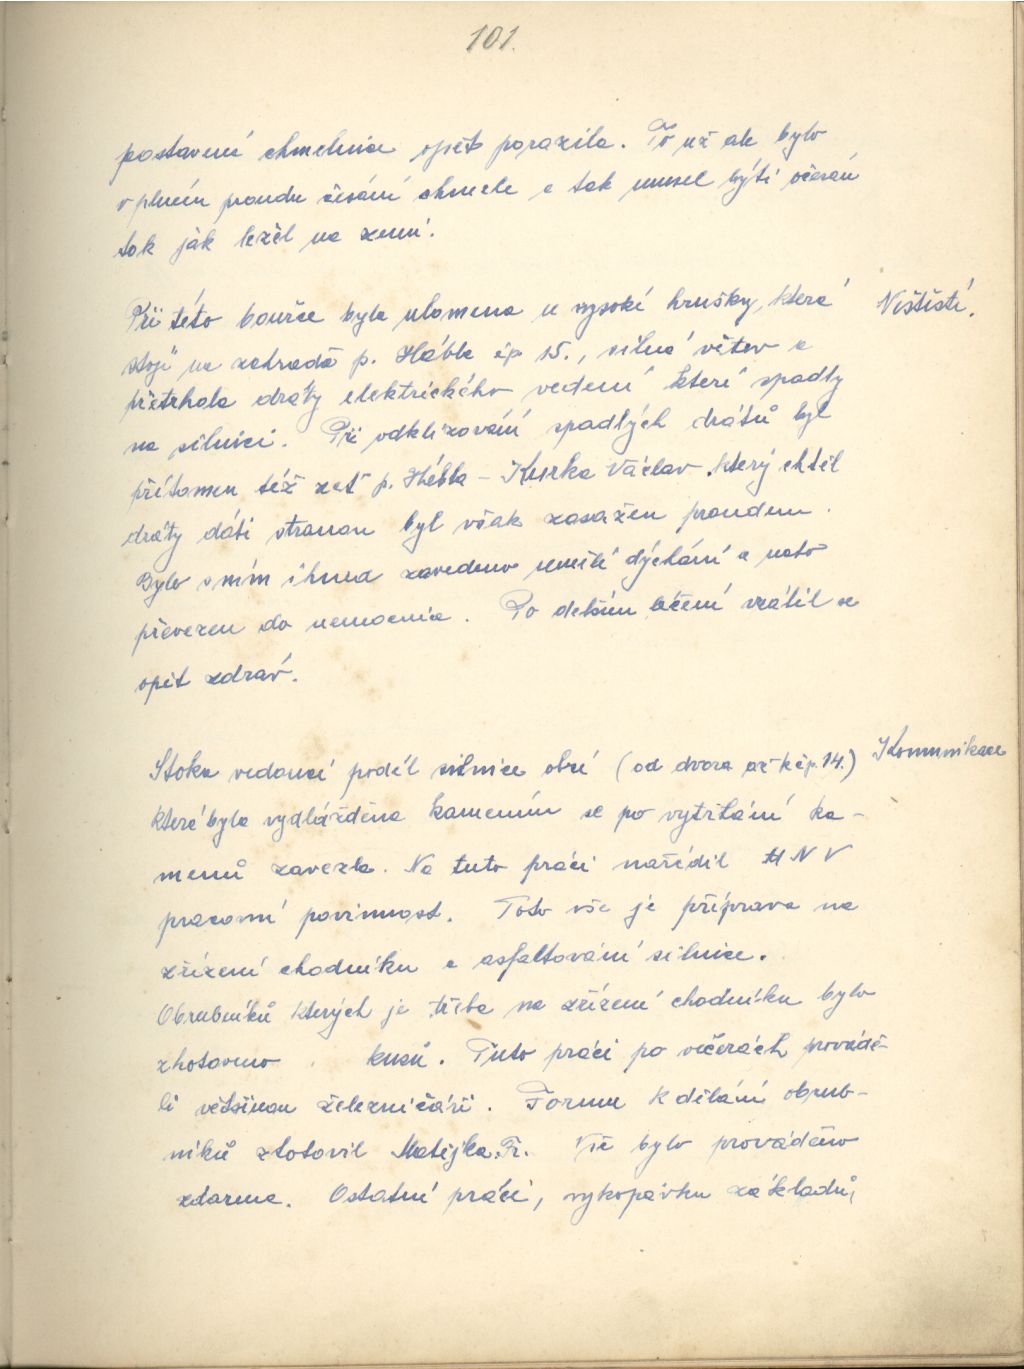 101.
postavení chmelnice opět porazila. To už ale bylo
v plném proudu česání chmele a tak musel býti očesán
tak jak ležel na zemi.
Při této bouřce byla ulomena u vysoké hrušky, která
Neštěstí.
stojí na zahradě p. Hábla čp 15., silná větev a
přetrhala dráty elektrického vedení které spadly
na silnici. Při odklizování spadlých drátů byl
přítomen též zeť p. Hábla - Kurka Václav který chtěl
dráty dáti stranou byl však zasažen proudem.
Bylo s ním ihned zavedeno umělé dýchání a nato
převezen do nemocnice. Po delším léčení vrátil se
opět zdráv.
Stoka vedoucí podél silnice obcí (od dvora až k čp. 14.)
Komunikace
která byla vydlážděna kamením se po vytrhání ka-
menů zavezla. Na tuto práci nařídil MNV
pracovní povinnost. Toto vše je příprava na
zřízení chodníku a asfaltování silnice.
Obrubníků kterých je třeba na zřízení chodníku bylo
zhotoveno . kusů. Tuto práci po večerách prováдě-
li většinou železničáři. Formu k dělání obrub-
níků zhotovil Matějka Fr. Vše bylo prováděno
zdarma. Ostatní práci, vykopávku základů,